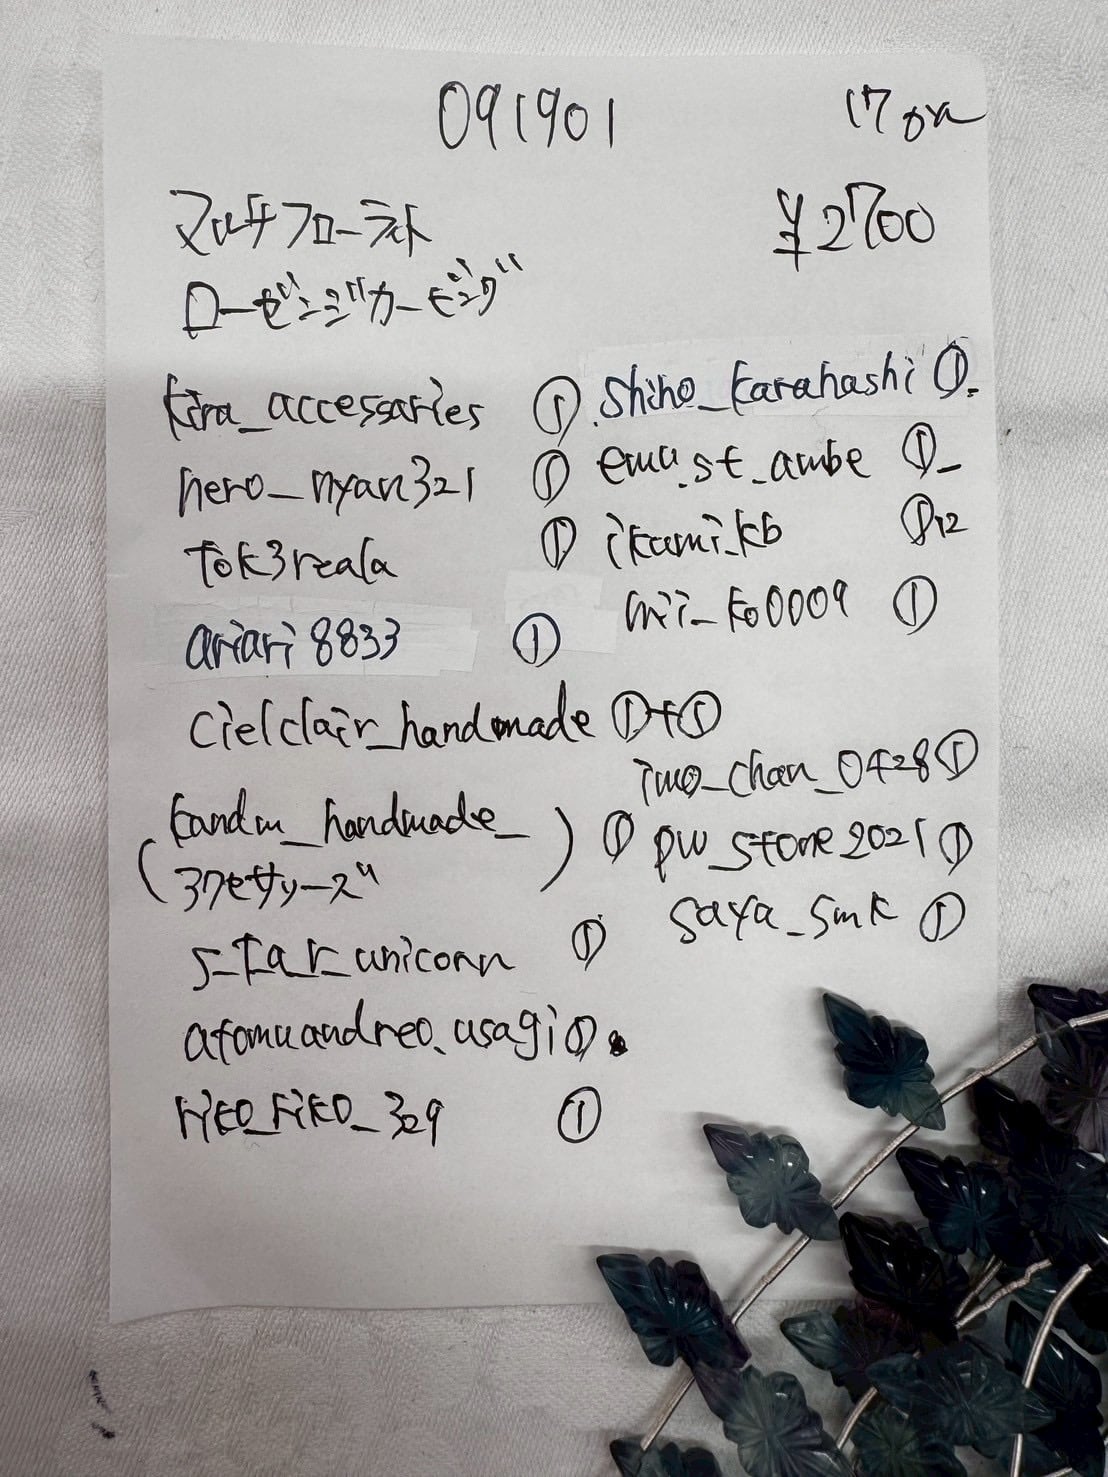 091901
17
マルチフローライト
¥2700
ローゼンジカービング
kira_accessaries ①
shiho_karahashi ①
nero_nyan321 ①
emu.st_ambe ①
tok3reala ①
ikumi.kb ①
ariari8833 ①
mii_ko0009 ①
cielclair_handmade ①+①
imo_chan_0428 ①
(kandm_handmade_
37セサリーズ) ①
pw_stone2021 ①
s_t_a_r_unicorn ①
saya_smk ①
atomuandreo.usagi ①
riko_riko_329 ①